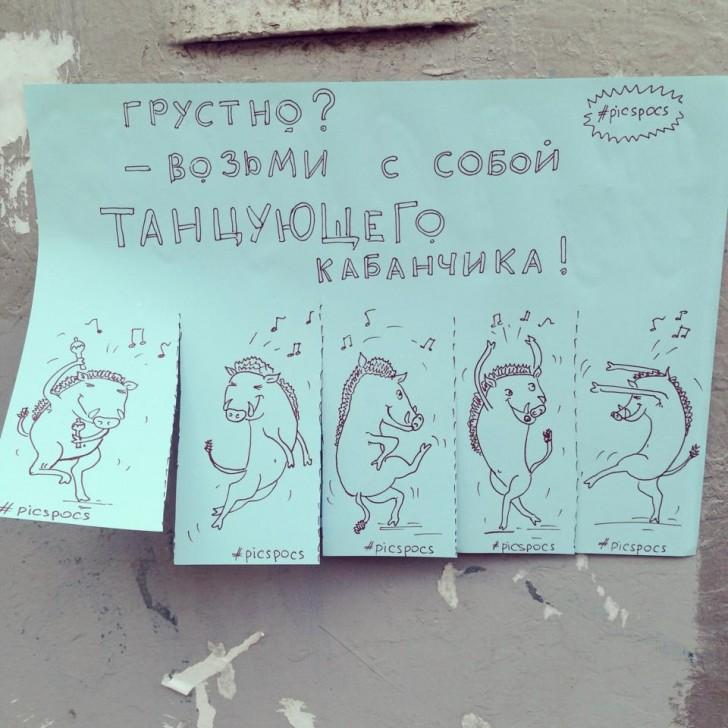 ГРУСТНО?
#picspocs
– ВОЗЬМИ С СОБОЙ
ТАНЦУЮЩЕГО
КАБАНЧИКА!
#picspocs
#picspocs
#picspocs
#picspocs
#picspocs